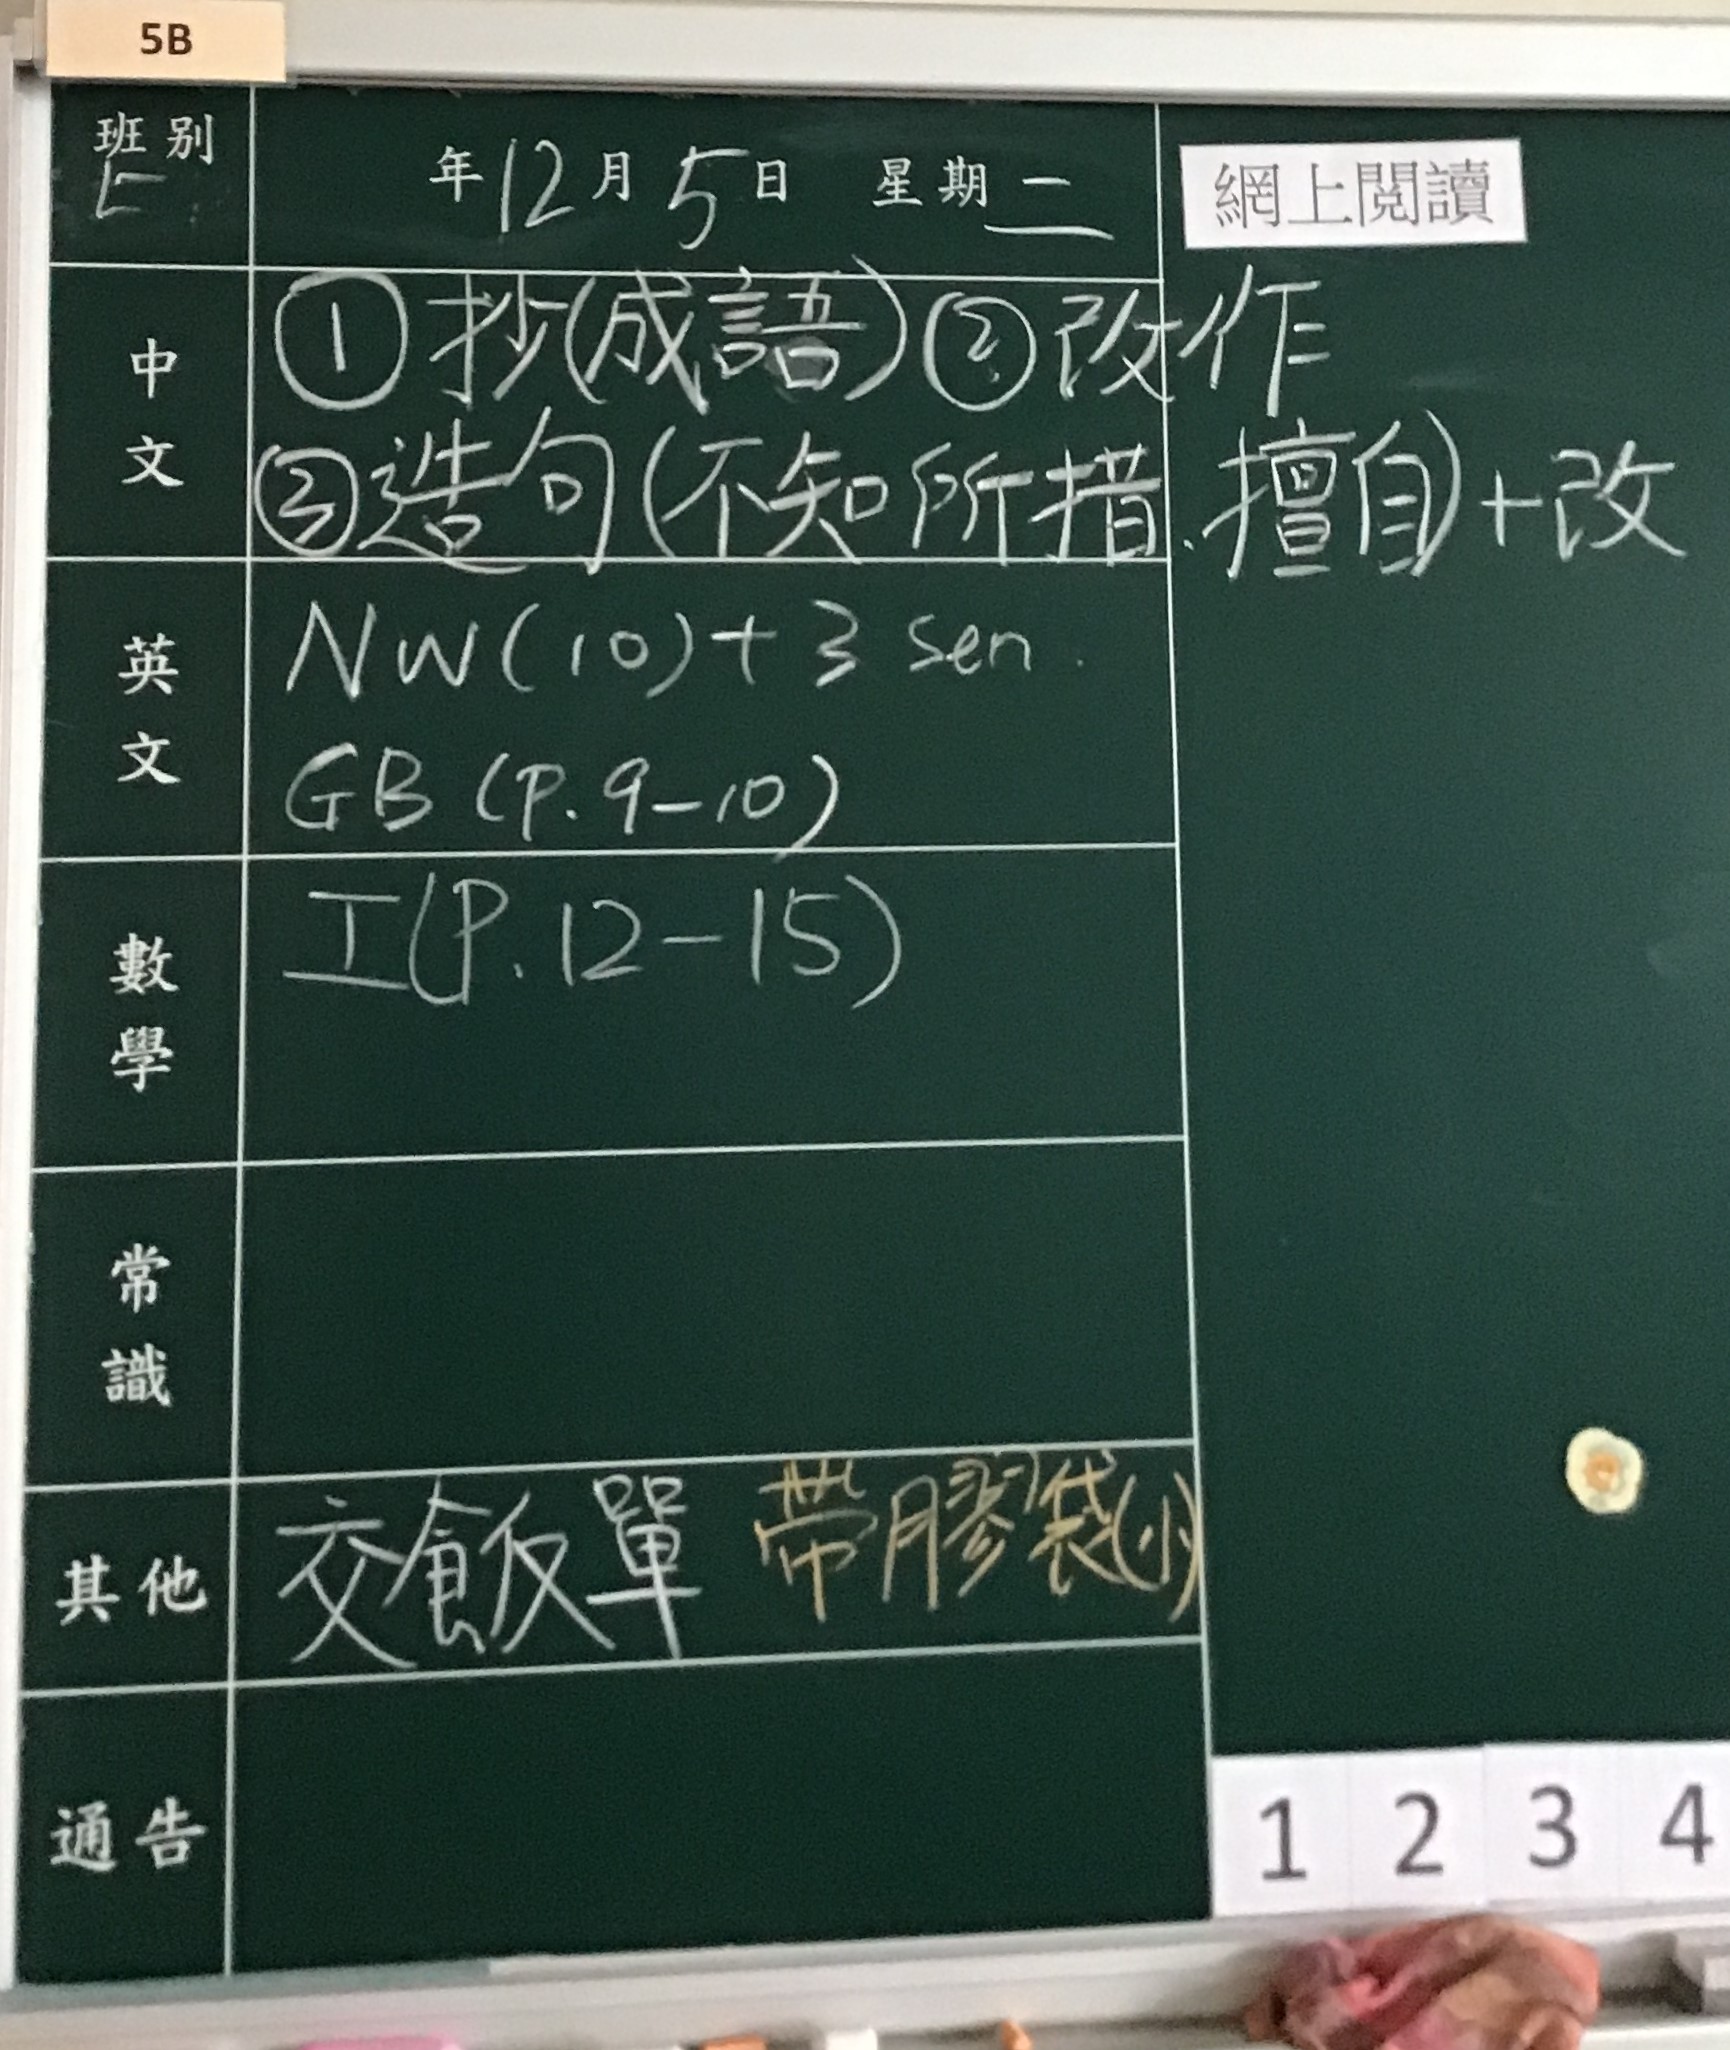 5B
班別
年12月5日 星期二
網上閱讀
中文
①抄(成語)②改作
③造句(不知所措、擅自)+改
英文
NW(10)+3 sen.
GB (P.9-10)
數學
工(P.12-15)
常識
其他
交飯單 帶膠袋(小)
通告
1 2 3 4